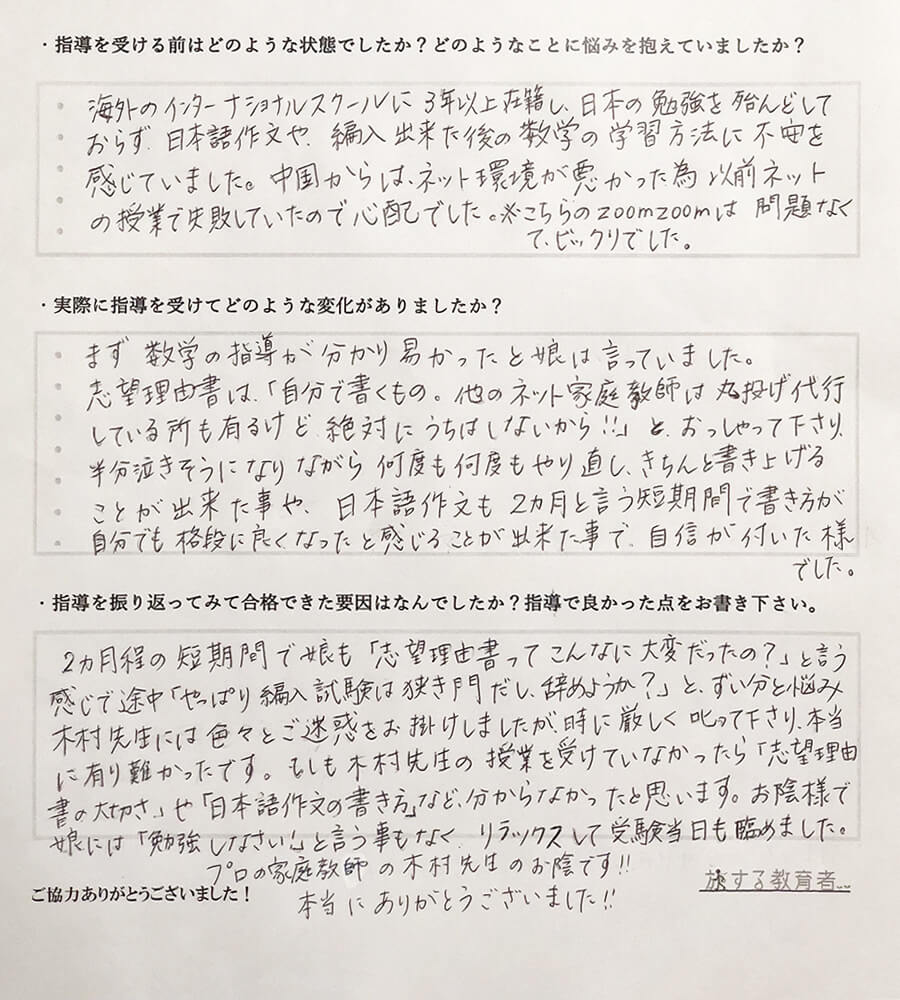 ・指導を受ける前はどのような状態でしたか？どのようなことに悩みを抱えていましたか？
海外のインターナショナルスクールに3年以上在籍し、日本の勉強を殆んどして
おらず、日本語作文や、編入出来た後の数学の学習方法に不安を
感じていました。中国からは、ネット環境が悪かった為以前ネット
の授業で失敗していたので心配でした。※こちらのzoomzoomは問題なく
て、ビックリでした。
・実際に指導を受けてどのような変化がありましたか？
まず数学の指導が分かり易かったと娘は言っていました。
志望理由書は、「自分で書くもの。他のネット家庭教師は丸投げ代行
している所も有るけど、絶対にうちはしないから!!」と、おっしゃって下さり、
半分泣きそうになりながら何度も何度もやり直し、きちんと書き上げる
ことが出来た事や、日本語作文も2ヵ月と言う短期間で書き方が
自分でも格段に良くなったと感じることが出来た事で、自信が付いた様
でした。
・指導を振り返ってみて合格できた要因はなんでしたか？指導で良かった点をお書き下さい。
2ヵ月程の短期間で娘も「志望理由書ってこんなに大変だったの？」と言う
感じで途中「やっぱり編入試験は狭き門だし、辞めようか？」と、ずい分と悩み
木村先生には色々とご迷惑をお掛けしましたが、時に厳しく叱って下さり、本当
に有り難かったです。もしも木村先生の授業を受けていなかったら「志望理由
書の大切さ」や「日本語作文の書き方」など、分からなかったと思います。お陰様で
娘には「勉強しなさい！」と言う事もなく、リラックスして受験当日も臨めました。
プロの家庭教師の木村先生のお陰です!!
ご協力ありがとうございました！
本当にありがとうございました!!
旅する教育者